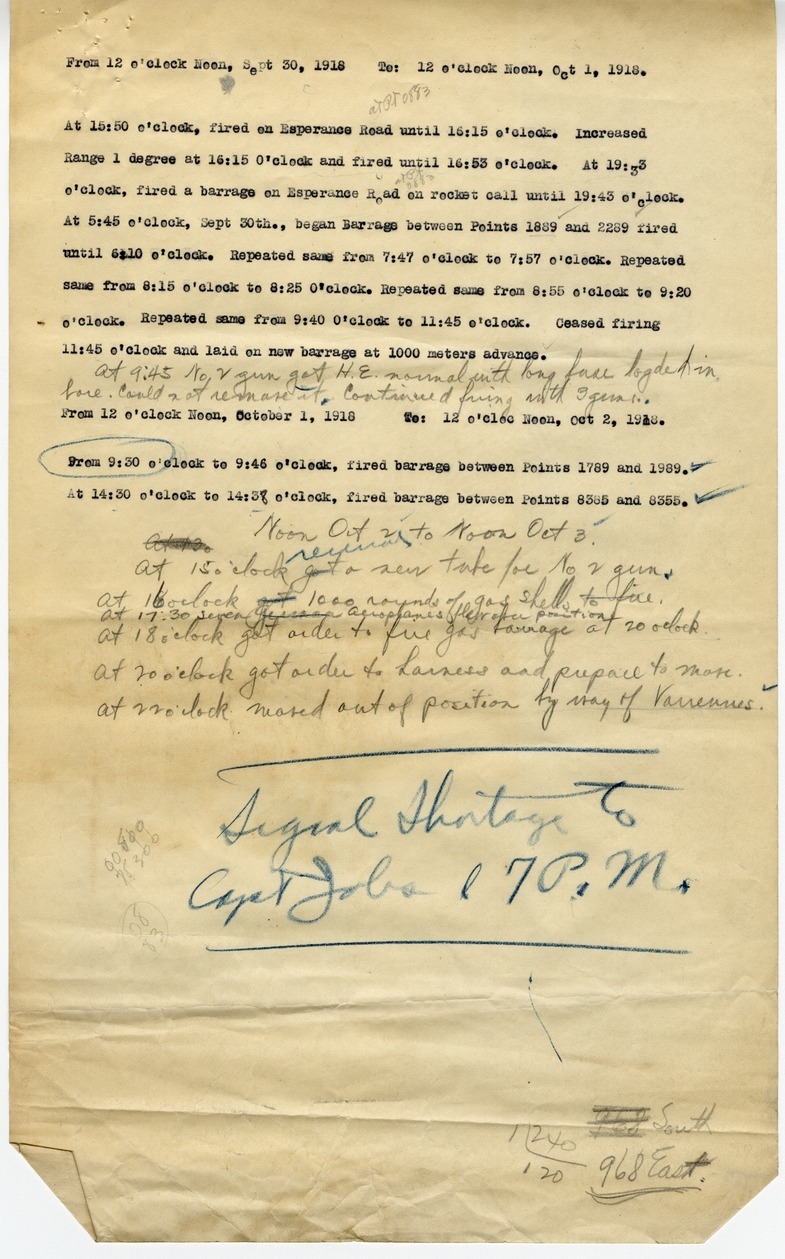 From 12 o'clock Noon, Sept 30, 1918 To: 12 o'clock Noon, Oct 1, 1918.
at Pt 0883
At 15:50 o'clock, fired on Esperance Road until 16:15 o'clock. Increased
Range 1 degree at 16:15 O'clock and fired until 16:53 o'clock. At 19:33
at Pt 0883
o'clock, fired a barrage on Esperance Road on rocket call until 19:43 o'clock.
At 5:45 o'clock, Sept 30th., began Barrage between Points 1889 and 2289 fired
until 6:10 o'clock. Repeated same from 7:47 o'clock to 7:57 o'clock. Repeated
same from 8:15 o'clock to 8:25 O'clock. Repeated same from 8:55 o'clock to 9:20
o'clock. Repeated same from 9:40 O'clock to 11:45 o'clock. Ceased firing
11:45 o'clock and laid on new barrage at 1000 meters advance.
At 9:45 No 2 gun got H.E. normal with long fuse logded in
bore. Could not remove it. Continued firing with 3 guns.
From 12 o'clock Noon, October 1, 1918 To: 12 o'cloc Noon, Oct 2, 1918.
From 9:30 o'clock to 9:46 o'clock, fired barrage between Points 1789 and 1989.
At 14:30 o'clock to 14:38 o'clock, fired barrage between Points 8385 and 8355.
Noon Oct 2 to Noon Oct 3.
At 15 o'clock received a new tube for No 2 gun.
At 16 o'clock 1000 rounds of gas shells to fire.
At 17:30 seven aeroplanes flew over position
At 18 o'clock got order to fire gas barrage at 20 oclock.
At 20 o'clock got order to harness and prepare to move.
At 22 o'clock moved out of position by way of Varrennes.
Signal Shortage to
Capt Jobs 17 P.M.
90.880
75.306
08
83
South
1240
120
968 East.